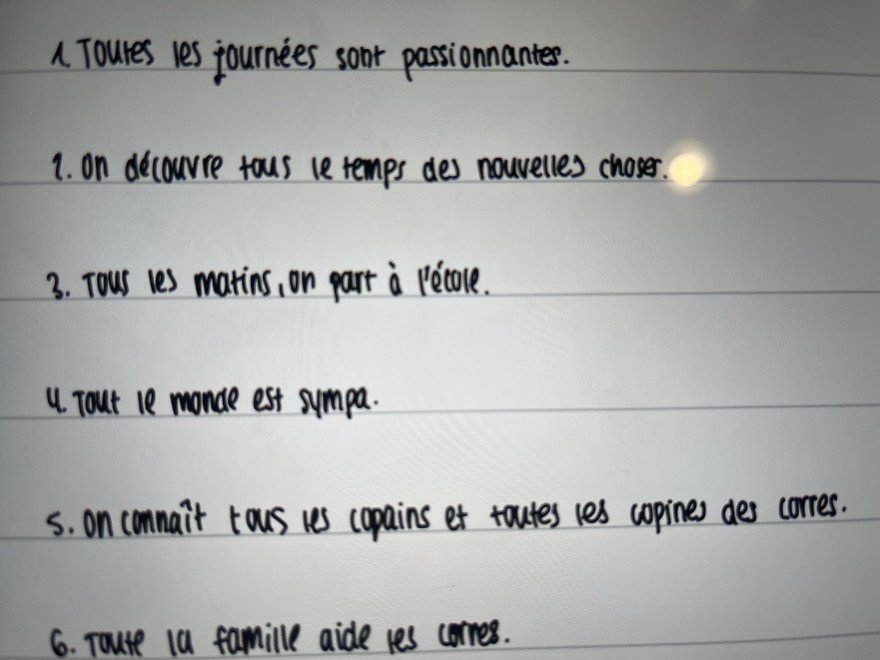 1. Toutes les journées sont passionnantes.
2. On découvre tous le temps des nouvelles choses.
3. Tous les matins, on part à l'école.
4. Tout le monde est sympa.
5. On connaît tous les copains et toutes les copines des corres.
6. Toute la famille aide les corres.